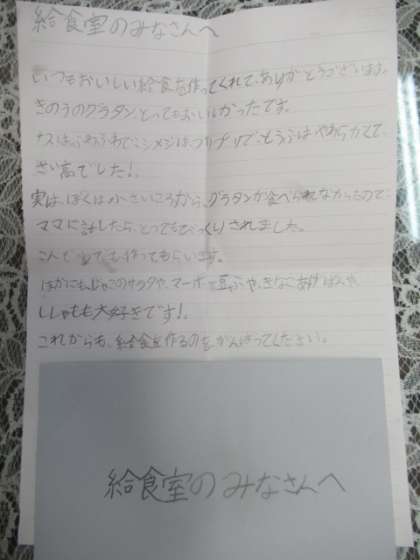 給食室のみなさんへ
いつもおいしい給食を作ってくれて、ありがとうございます。
きのうのグラタン、とってもおいしかったです。
ナスはふわふわで、シメジはつりプリで、とうふはやわらかくて、
さい高でした!
実は、ぼくは小さいころから、グラタンが食べられなかったので
ママに話したら、とってもびっくりされました。
こんど、でも作ってもらいます。
ほかにも、じゃこのサラダや、マーボー豆ふや、きなこあげぱんや、
ししゃもも大好きです!
これからも、給食を作るのをがんばってください。
給食室のみなさんへ